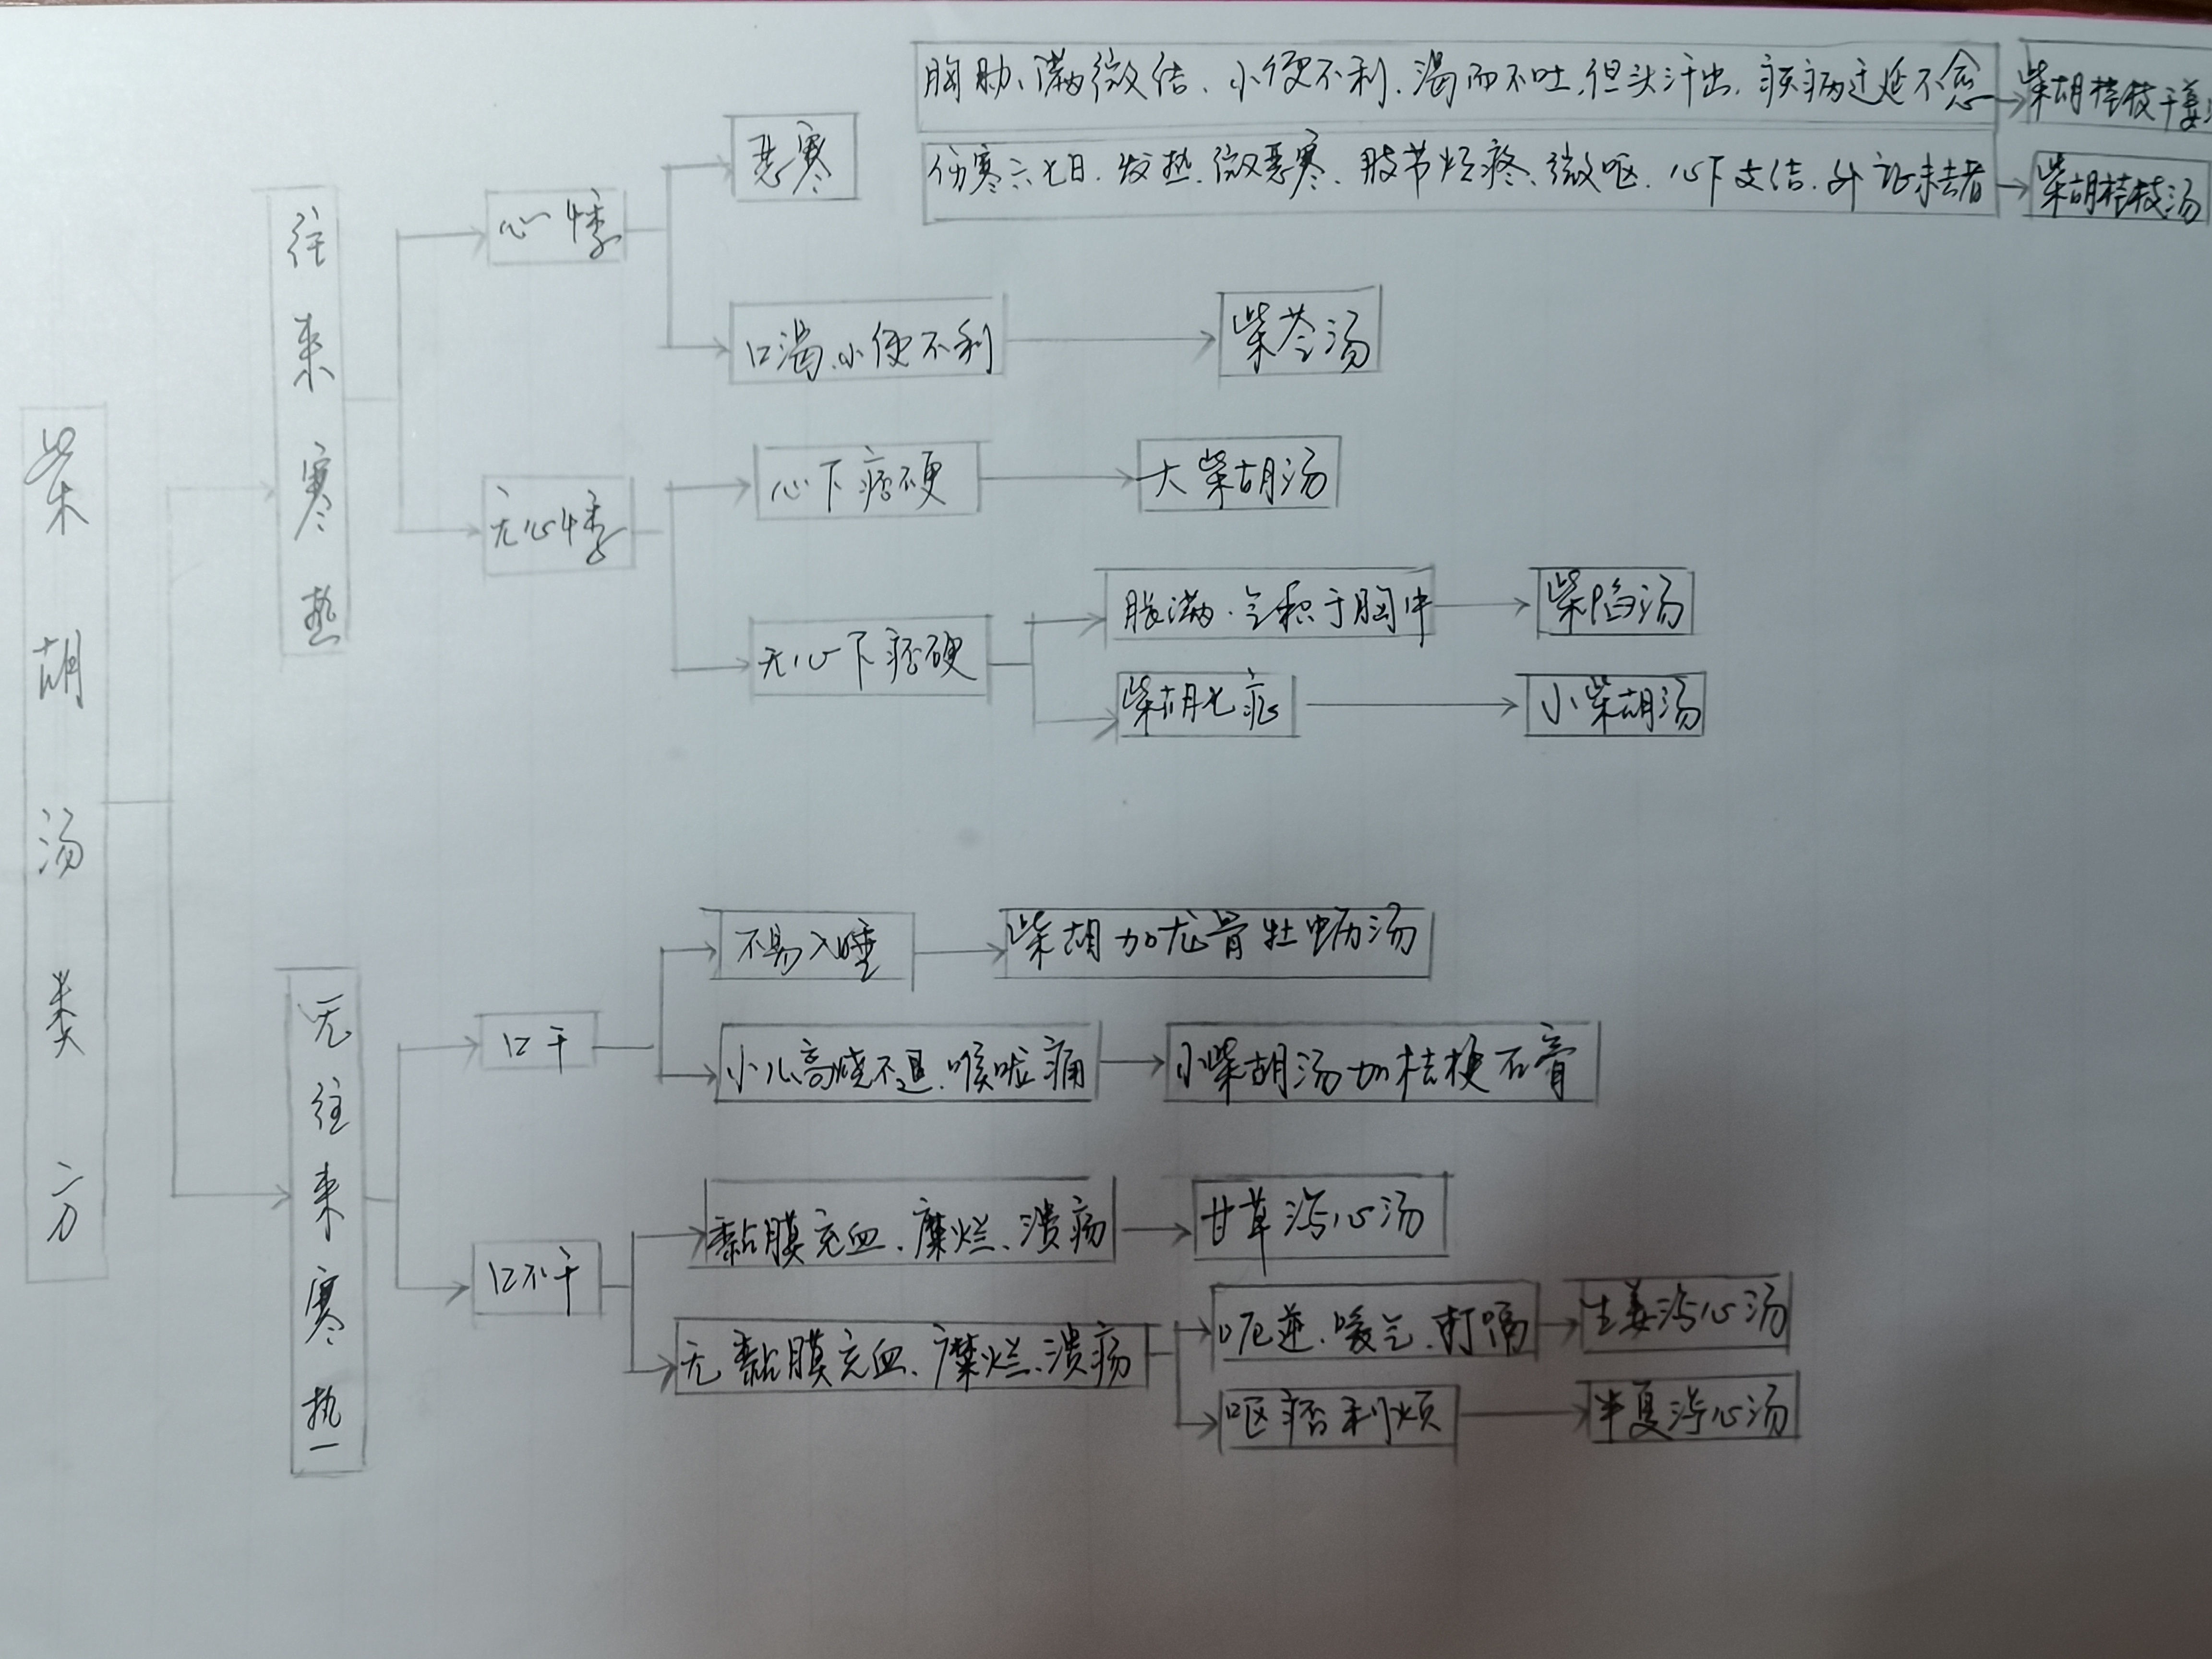 柴胡汤类方
往来寒热
心悸
恶寒
胸胁满微结、小便不利、渴而不吐、但头汗出、疾病迁延不愈
柴胡桂枝干姜
伤寒六七日、发热、微恶寒、肢节烦疼、微呕、心下支结、外证未去者
柴胡桂枝汤
口渴、小便不利
柴苓汤
无心悸
心下痞硬
大柴胡汤
无心下痞硬
胀满、气积于胸中
柴陷汤
柴胡七症
小柴胡汤
无往来寒热
口干
不易入睡
柴胡加龙骨牡蛎汤
小儿高烧不退、喉咙痛
小柴胡汤加桔梗石膏
口不干
黏膜充血、糜烂、溃疡
甘草泻心汤
无黏膜充血、糜烂、溃疡
呃逆、嗳气、打嗝
生姜泻心汤
呕痞利烦
半夏泻心汤